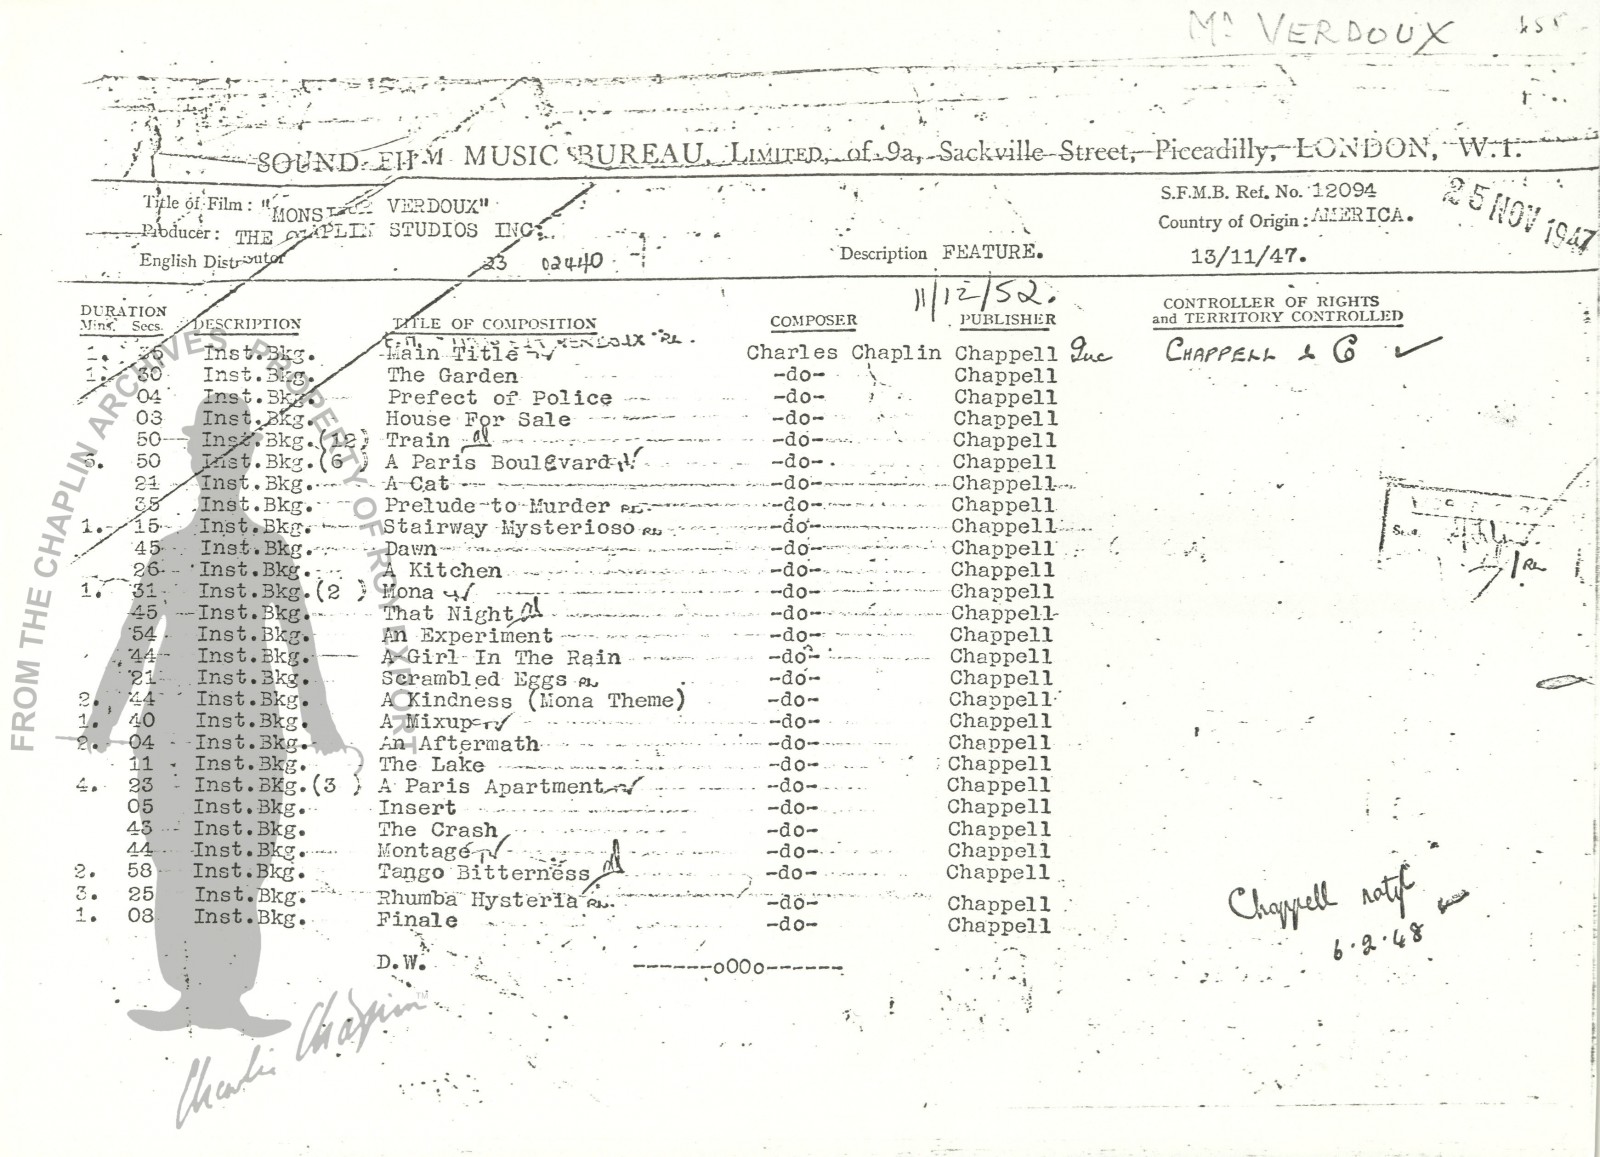 Mr VERDOUX
SOUND FILM MUSIC BUREAU, LIMITED, of 9a, Sackville Street, Piccadilly, LONDON, W.1.
Title of Film: "MONSIEUR VERDOUX"
S.F.M.B. Ref. No. 12094
25 NOV 1947
Producer: THE CHAPLIN STUDIOS INC.
Country of Origin: AMERICA.
English Distributor
23 02440
Description FEATURE.
13/11/47.
11/12/52.
DURATION
Mins. Secs. DESCRIPTION TITLE OF COMPOSITION COMPOSER PUBLISHER CONTROLLER OF RIGHTS
and TERRITORY CONTROLLED
1. 35 Inst.Bkg. Main Title Charles Chaplin Chappell Inc CHAPPELL & Co
1. 30 Inst.Bkg. The Garden -do- Chappell
04 Inst.Bkg. Prefect of Police -do- Chappell
03 Inst.Bkg. House For Sale -do- Chappell
50 Inst.Bkg.(12) Train -do- Chappell
6. 50 Inst.Bkg.(6 ) A Paris Boulevard -do- Chappell
21 Inst.Bkg. A Cat -do- Chappell
35 Inst.Bkg. Prelude to Murder RL -do- Chappell
1. 15 Inst.Bkg. Stairway Mysterioso RL -do- Chappell
45 Inst.Bkg. Dawn -do- Chappell
26 Inst.Bkg. A Kitchen -do- Chappell
1. 31 Inst.Bkg.(2 ) Mona -do- Chappell
45 Inst.Bkg. That Night -do- Chappell
54 Inst.Bkg. An Experiment -do- Chappell
44 Inst.Bkg. A Girl In The Rain -do- Chappell
21 Inst.Bkg. Scrambled Eggs RL -do- Chappell
2. 44 Inst.Bkg. A Kindness (Mona Theme) -do- Chappell
1. 40 Inst.Bkg. A Mixup -do- Chappell
2. 04 Inst.Bkg. An Aftermath -do- Chappell
11 Inst.Bkg. The Lake -do- Chappell
4. 23 Inst.BKg.(3 ) A Paris Apartment -do- Chappell
05 Inst.Bkg. Insert -do- Chappell
43 Inst.Bkg. The Crash -do- Chappell
44 Inst.Bkg. Montage -do- Chappell
2. 58 Inst.Bkg. Tango Bitterness -do- Chappell
3. 25 Inst.Bkg. Rhumba Hysteria RL. -do- Chappell
1. 08 Inst.Bkg. Finale -do- Chappell
D.W. ------oOOo------
Chappell
6.2.48
FROM THE CHAPLIN ARCHIVES PROPERTY OF ROY EXPORT
Charlie Chaplin TM